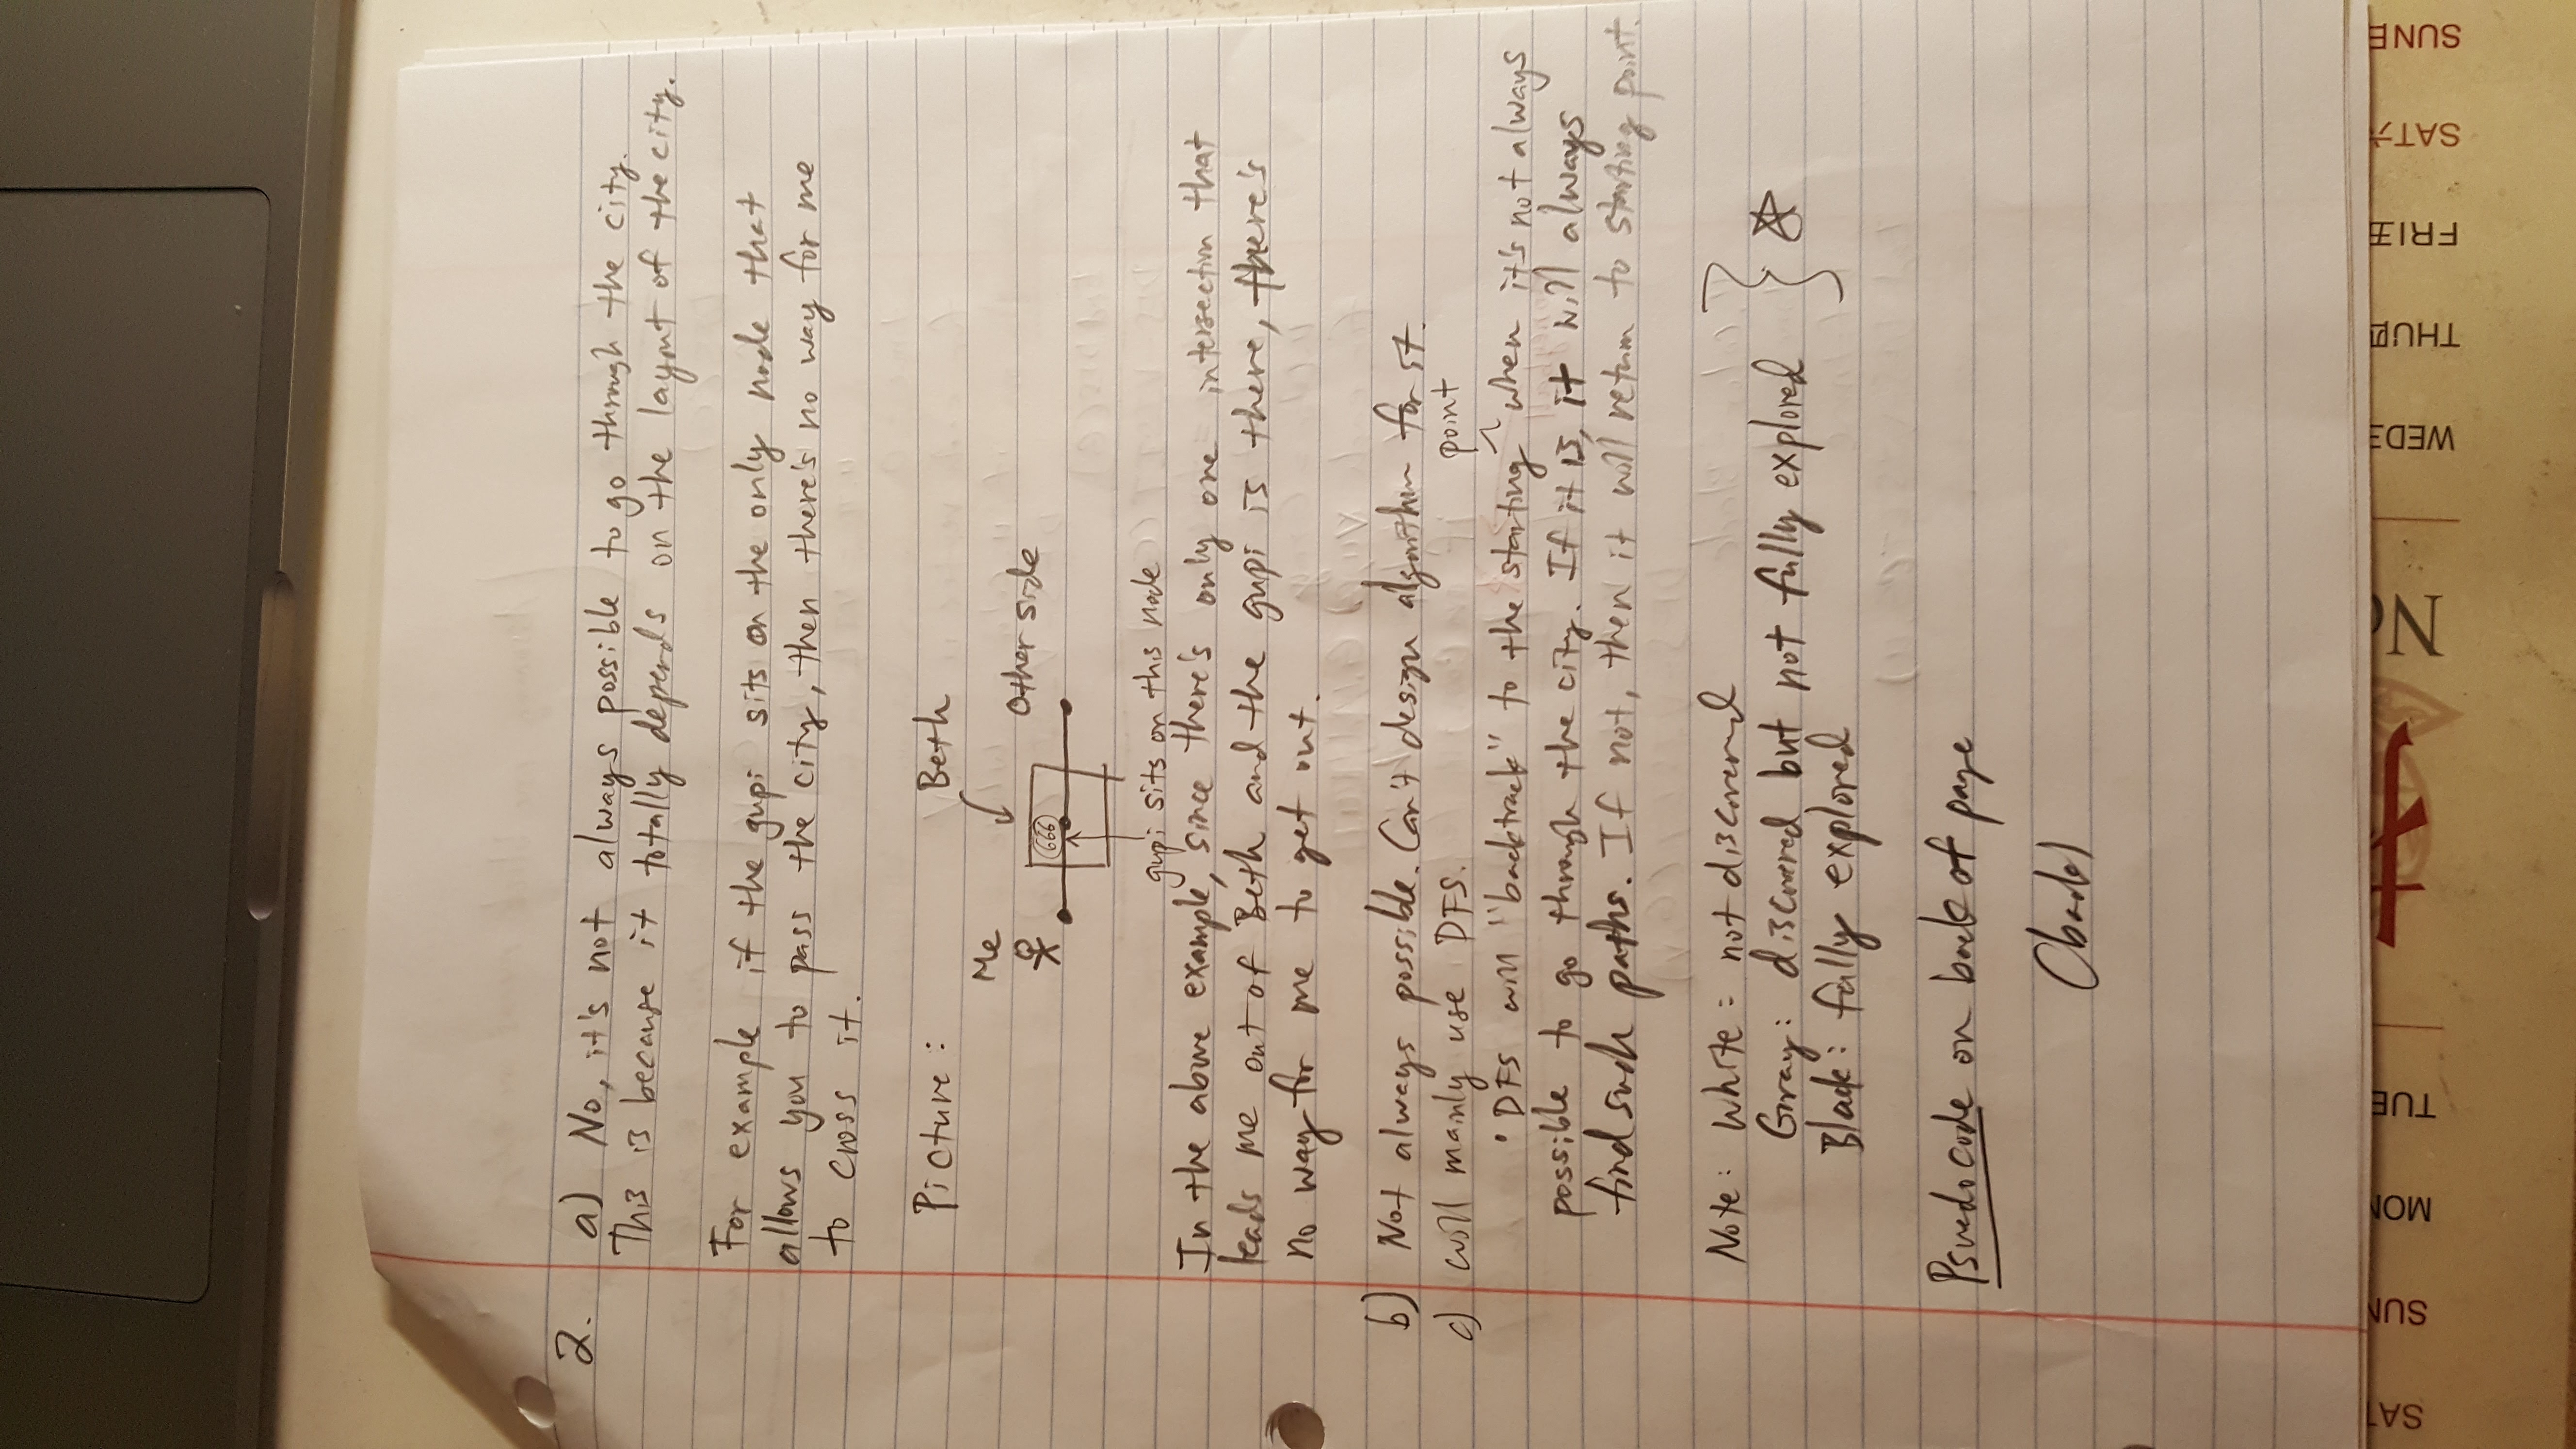 2. a) No, it's not always possible to go through the city.
This is because it totally depends on the layout of the city.
For example if the gupi sits on the only node that
allows you to pass the city, then there's no way for me
to cross it.
Picture:
Beth
Me
Other side
666
gupi sits on this node
In the above example, since there's only one intersection that
leads me out of Beth and the gupi is there, there's
no way for me to get out.
b) Not always possible. Can't design algorithm for it.
c) will mainly use DFS.
point
• DFS will "backtrack" to the starting ^ when it's not always
possible to go through the city. If it is, it will always
find such paths. If not, then it will return to starting point.
Note: White: not discovered
Gray: discovered but not fully explored
Black: fully explored
Psuedocode on back of page
(back)
SAT
SUN
MON
TUE
WED三
THU四
FRI五
SAT六
SUN日